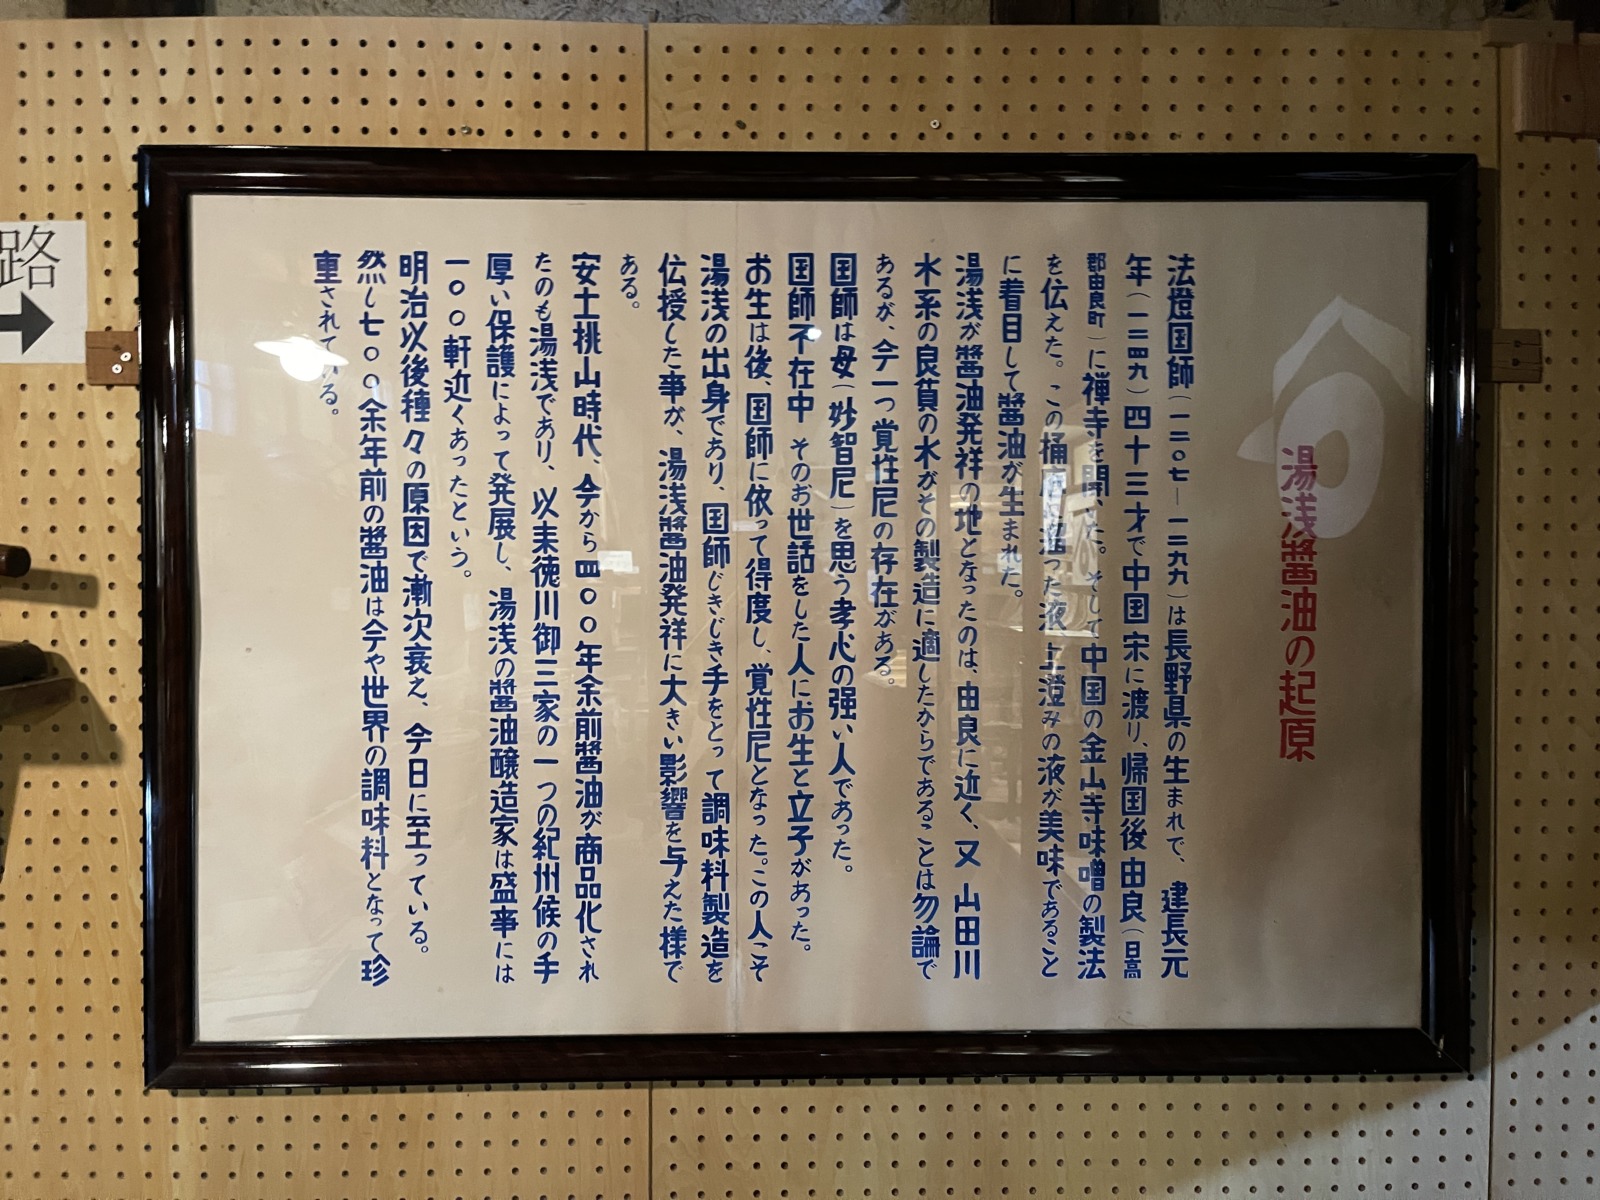 湯浅醬油の起原
法燈国師(一二〇七―一二九九)は長野県の生まれで、建長元
年(一二四九)四十三才で中国宋に渡り、帰国後由良(日高
郡由良町)に禅寺を開いた。そして中国の金山寺味噌の製法
を伝えた。この桶底に溜った液上澄みの液が美味であること
に着目して醬油が生まれた。
湯浅が醬油発祥の地となったのは、由良に近く、又山田川
水系の良質の水がその製造に適したからであることは勿論で
あるが、今一つ覚性尼の存在がある。
国師は母(妙智尼)を思う孝心の强い人であった。
国師不在中そのお世話をした人にお生と立子があった。
お生は後、国師に依って得度し、覚性尼となった。この人こそ
湯浅の出身であり、国師じきじき手をとって調味料製造を
伝授した事が、湯浅醬油発祥に大きい影響を与えた様で
ある。
安土桃山時代、今から四〇〇年余前醬油が商品化され
たのも湯浅であり、以来徳川御三家の一つの紀州候の手
厚い保護によって発展し、湯浅の醬油醸造家は盛事には
一〇〇軒近くあったという。
明治以後種々の原因で漸次衰え、今日に至っている。
然し七〇〇余年前の醬油は今や世界の調味料となって珍
重されている。
路